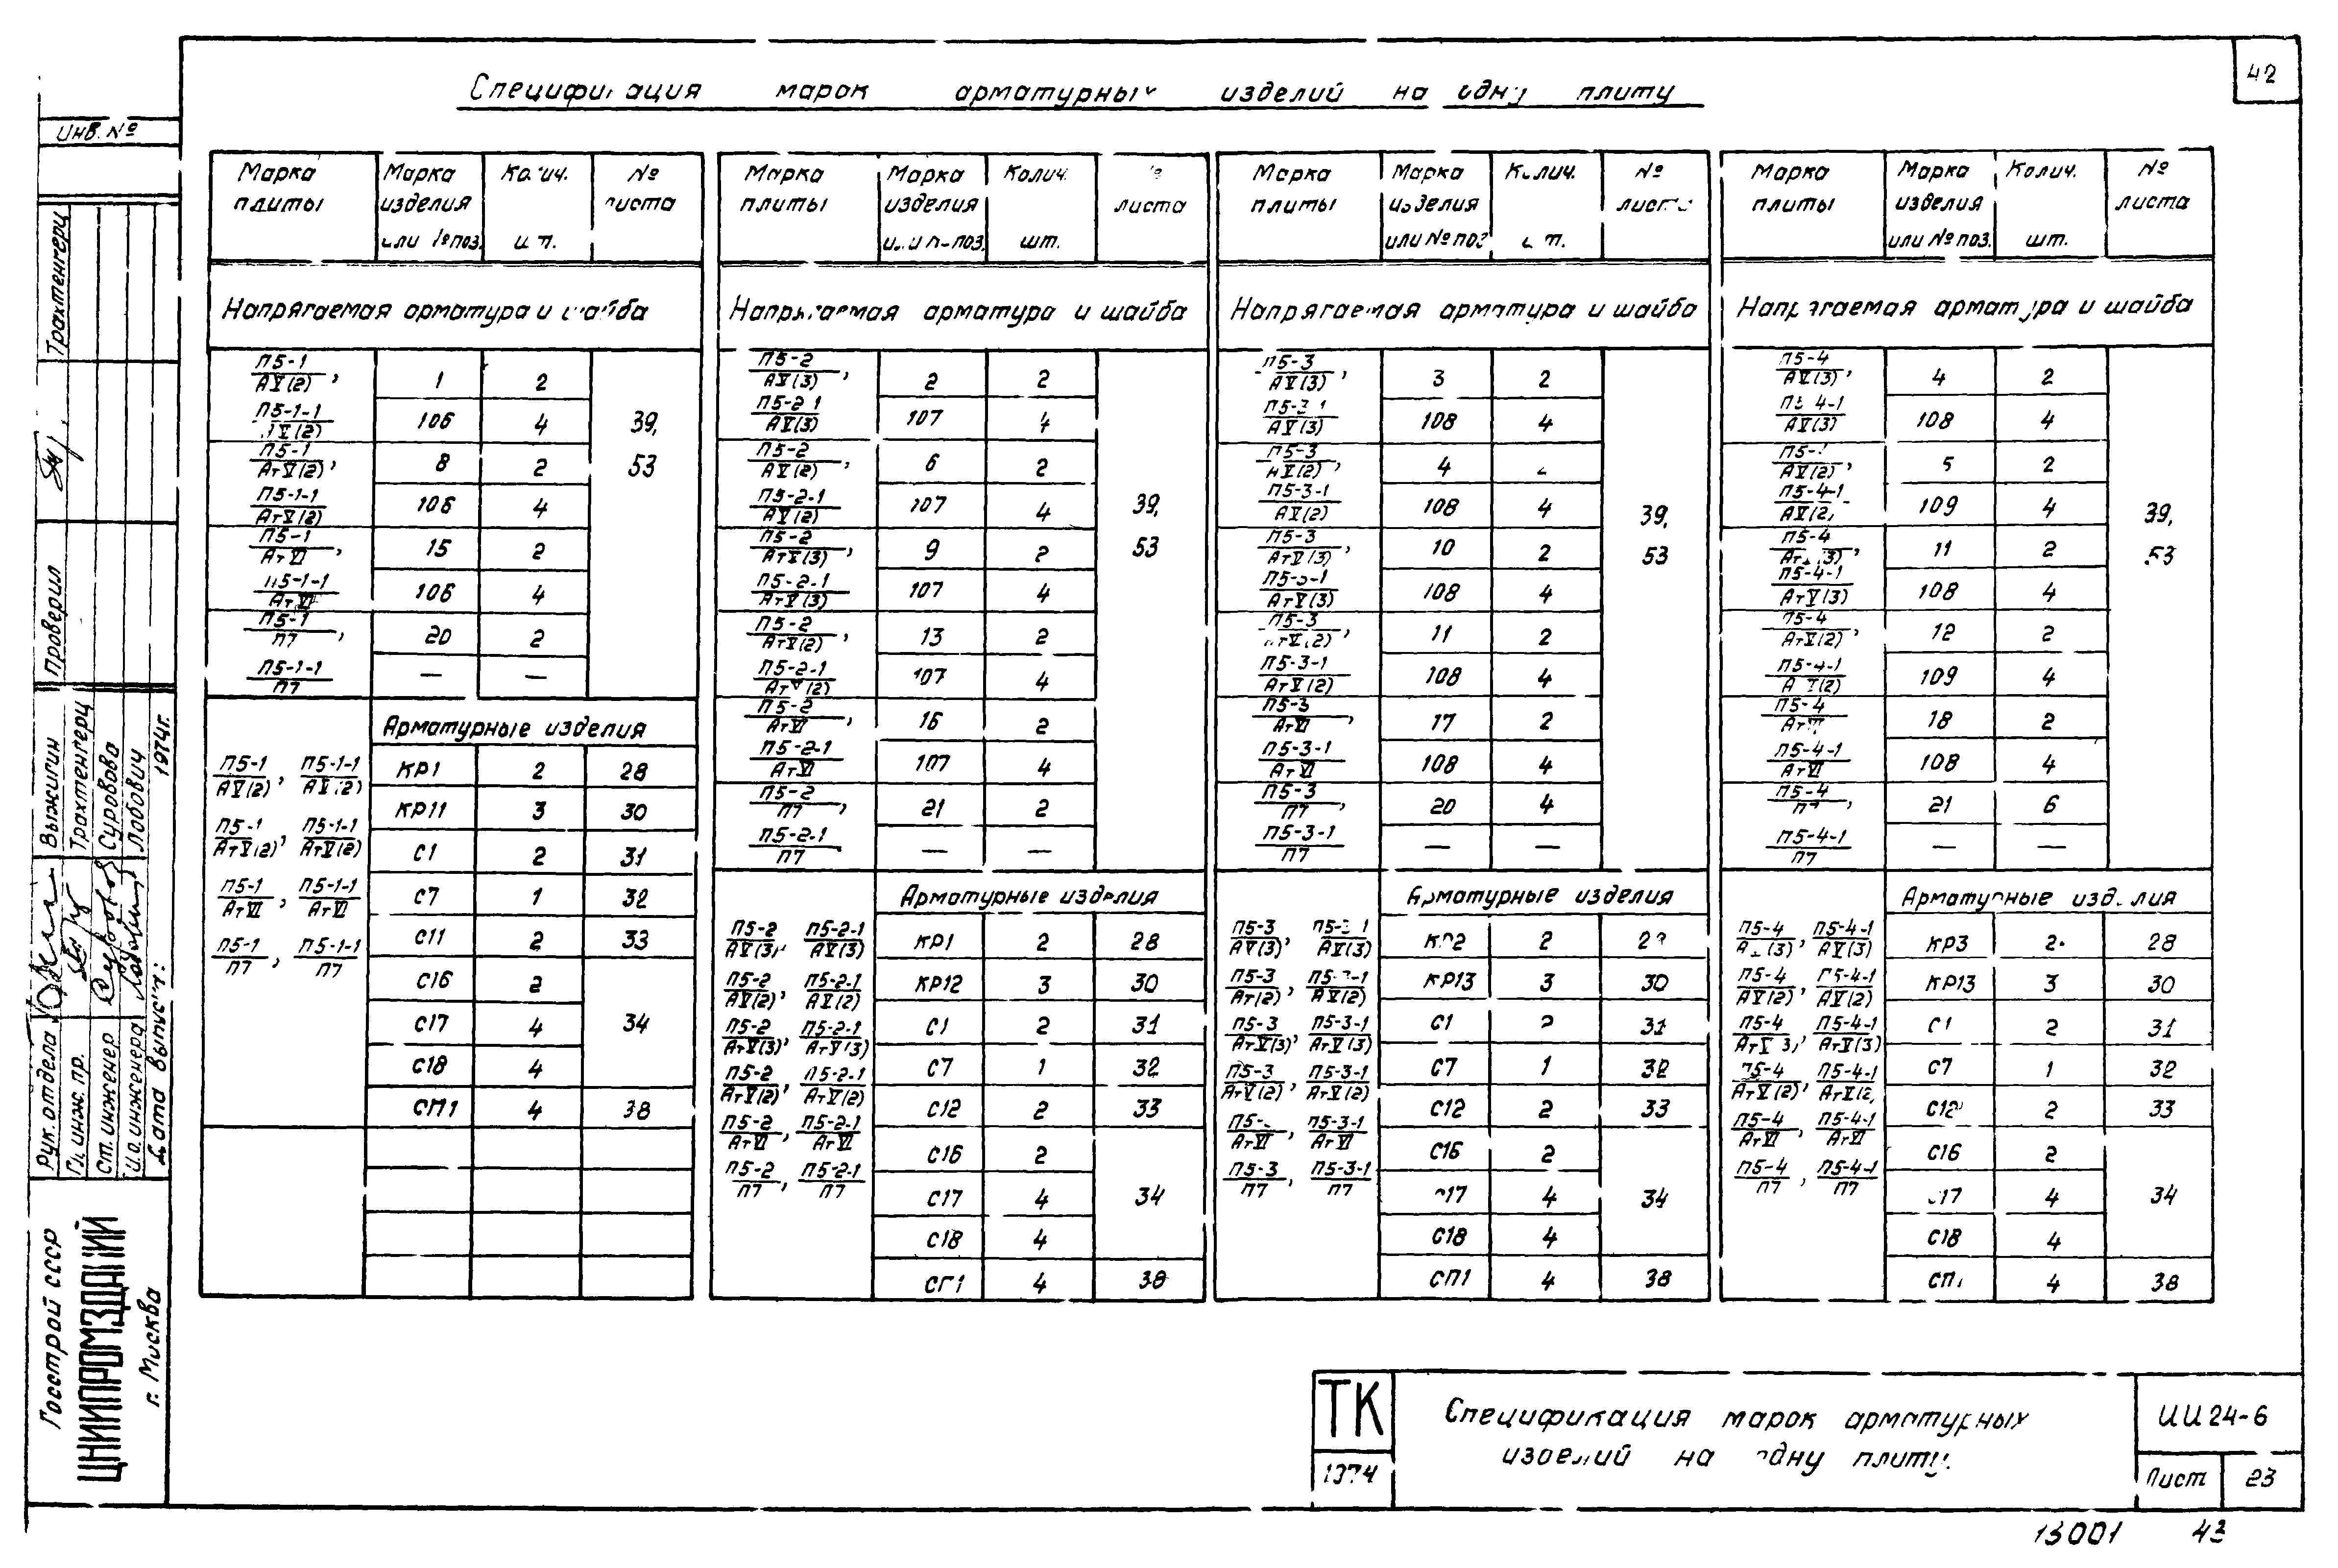 42
Спецификация марок арматурных изделий на одну плиту
Инв. №
Марка плиты | Марка изделия или № поз. | Колич. шт. | № листа
Напрягаемая арматура и шайба
П5-1/АV(2), | 1 | 2 | 39, 53
П5-1-1/АV(2) | 106 | 4
П5-1/АтV(2), | 8 | 2
П5-1-1/АтV(2) | 106 | 4
П5-1/АтVI, | 15 | 2
П5-1-1/АтVI | 106 | 4
П5-1/П7, | 20 | 2
П5-1-1/П7 | — | —
Арматурные изделия
П5-1/АV(2), П5-1-1/АV(2)
П5-1/АтV(2), П5-1-1/АтV(2)
П5-1/АтVI, П5-1-1/АтVI
П5-1/П7, П5-1-1/П7
КР1 | 2 | 28
КР11 | 3 | 30
С1 | 2 | 31
С7 | 1 | 32
С11 | 2 | 33
С16 | 2 | 34
С17 | 4
С18 | 4
СП1 | 4 | 38
Марка плиты | Марка изделия или № поз. | Колич. шт. | № листа
Напрягаемая арматура и шайба
П5-2/АV(3), | 2 | 2 | 39, 53
П5-2-1/АV(3) | 107 | 4
П5-2/АV(2), | 6 | 2
П5-2-1/АV(2) | 107 | 4
П5-2/АтV(3), | 9 | 2
П5-2-1/АтV(3) | 107 | 4
П5-2/АтV(2), | 13 | 2
П5-2-1/АтV(2) | 107 | 4
П5-2/АтVI, | 16 | 2
П5-2-1/АтVI | 107 | 4
П5-2/П7, | 21 | 2
П5-2-1/П7 | — | —
Арматурные изделия
П5-2/АV(3), П5-2-1/АV(3)
П5-2/АV(2), П5-2-1/АV(2)
П5-2/АтV(3), П5-2-1/АтV(3)
П5-2/АтV(2), П5-2-1/АтV(2)
П5-2/АтVI, П5-2-1/АтVI
П5-2/П7, П5-2-1/П7
КР1 | 2 | 28
КР12 | 3 | 30
С1 | 2 | 31
С7 | 1 | 32
С12 | 2 | 33
С16 | 2 | 34
С17 | 4
С18 | 4
СП1 | 4 | 38
Марка плиты | Марка изделия или № поз. | Колич. шт. | № листа
Напрягаемая арматура и шайба
П5-3/АV(3), | 3 | 2 | 39, 53
П5-3-1/АV(3) | 108 | 4
П5-3/АV(2), | 4
П5-3-1/АV(2) | 108 | 4
П5-3/АтV(3), | 10 | 2
П5-3-1/АтV(3) | 108 | 4
П5-3/АтV(2), | 11 | 2
П5-3-1/АтV(2) | 108 | 4
П5-3/АтVI, | 17 | 2
П5-3-1/АтVI | 108 | 4
П5-3/П7, | 20 | 4
П5-3-1/П7 | — | —
Арматурные изделия
П5-3/АV(3), П5-3-1/АV(3)
П5-3/Ат(2), П5-3-1/АV(2)
П5-3/АтV(3), П5-3-1/АтV(3)
П5-3/АтV(2), П5-3-1/АтV(2)
П5-3/АтVI, П5-3-1/АтVI
П5-3/П7, П5-3-1/П7
КР2 | 2
КР13 | 3 | 30
С1 | 2 | 31
С7 | 1 | 32
С12 | 2 | 33
С16 | 2 | 34
С17 | 4
С18 | 4
СП1 | 4 | 38
Марка плиты | Марка изделия или № поз. | Колич. шт. | № листа
Напрягаемая арматура и шайба
П5-4/АV(3), | 4 | 2 | 39, 53
П5-4-1/АV(3) | 108 | 4
П5-4/АV(2), | 5 | 2
П5-4-1/АV(2) | 109 | 4
П5-4/АтV(3), | 11 | 2
П5-4-1/АтV(3) | 108 | 4
П5-4/АтV(2), | 12 | 2
П5-4-1/АтV(2) | 109 | 4
П5-4/АтVI, | 18 | 2
П5-4-1/АтVI | 108 | 4
П5-4/П7, | 21 | 6
П5-4-1/П7 | — | —
Арматурные изделия
П5-4/АV(3), П5-4-1/АV(3)
П5-4/АV(2), П5-4-1/АV(2)
П5-4/АтV(3), П5-4-1/АтV(3)
П5-4/АтV(2), П5-4-1/АтV(2)
П5-4/АтVI, П5-4-1/АтVI
П5-4/П7, П5-4-1/П7
КР3 | 2 | 28
КР13 | 3 | 30
С1 | 2 | 31
С7 | 1 | 32
С12 | 2 | 33
С16 | 2 | 34
С17 | 4
С18 | 4
СП1 | 4 | 38
Проверил Трахтенгерц
Рук. отдела Выжигин
Гл. инж. пр. Трахтенгерц
Ст. инженер Суровова
И.о. инженера Лобович
Дата выпуска: 1974г.
Госстрой СССР
ЦНИИПРОМЗДАНИЙ
г. Москва
ТК
1974
Спецификация марок арматурных
изделий на одну плиту.
ИИ24-6
Лист 23
13001 43